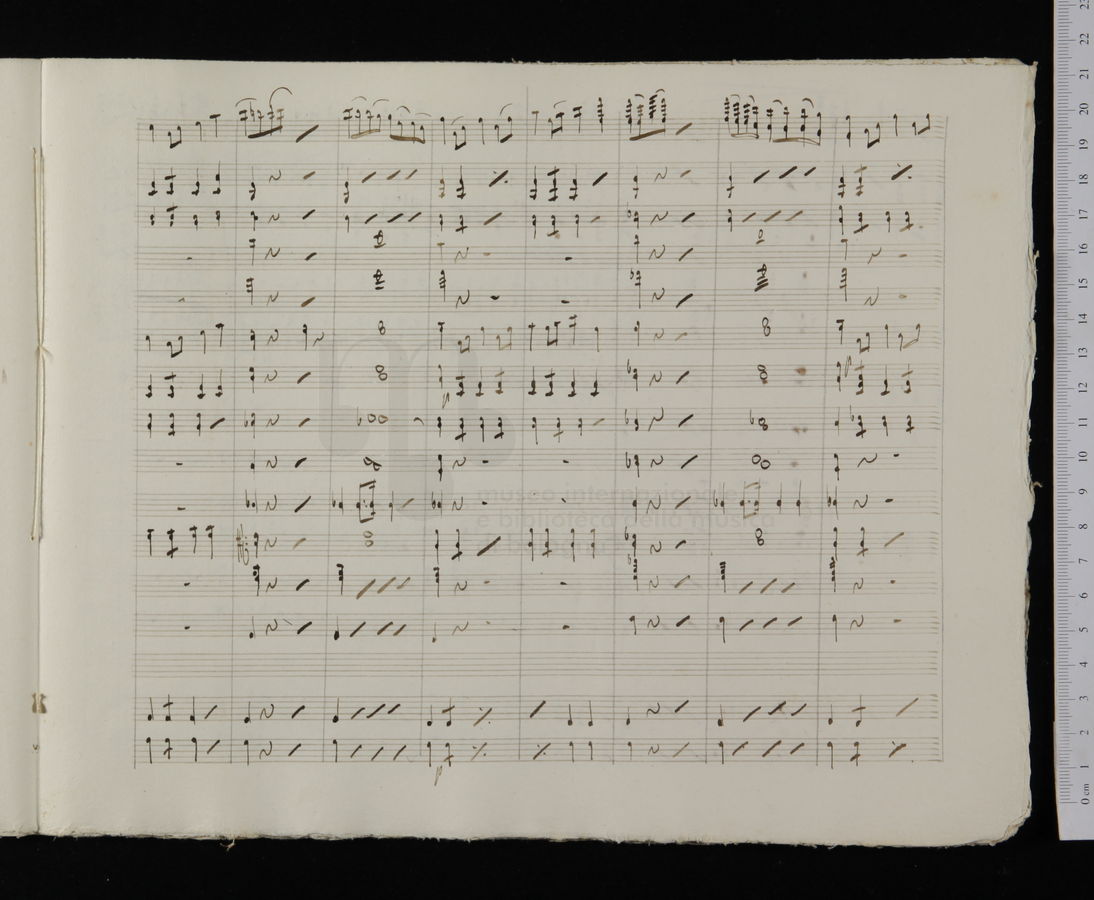 museo internazionale
e biblioteca della musica
p
p
p
23
22
21
20
19
18
17
16
15
14
13
12
11
10
9
8
7
6
5
4
3
2
1
0 cm